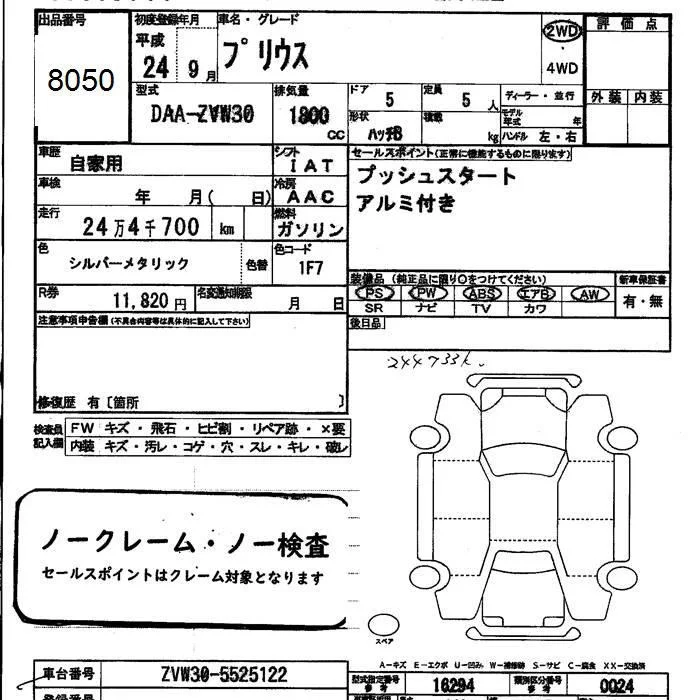 出品番号 初度登録年月 車名・グレード 評価点
8050 平成 24 9月 プリウス 2WD ・ 4WD
型式 排気量 ドア 定員 ディーラー・並行 外装 内装
DAA-ZVW30 1800 CC 5 5 人 モデル年式 年
形状 積載 ハッチB kg ハンドル 左・右
車歴 自家用 シフト IAT セールスポイント(正常に機能するものに限ります)
車検 年 月( 日) 冷房 AAC プッシュスタート
アルミ付き
走行 24万4千700 km 燃料 ガソリン
色 シルバーメタリック 色替 色コード 1F7
装備品 (純正品に限り○をつけてください) 新車保証書
R券 11,820円 名変通知期限 月 日 PS PW ABS エアB AW 有・無
SR ナビ TV カワ
注意事項申告欄(不具合内容等は具体的に記入して下さい) 後日品
244733k.
修復歴 有〔箇所 〕
検査員記入欄 FW キズ・飛石・ヒビ割・リペア跡・×要
内装 キズ・汚レ・コゲ・穴・スレ・キレ・破レ
ノークレーム・ノー検査
セールスポイントはクレーム対象となります
スペア
A-キズ E-エクボ U-凹み W-補修跡 S-サビ C-腐食 XX-交換済
車台番号 ZVW30-5525122 型式指定番号 参考 16294 類別区分番号 参考 0024